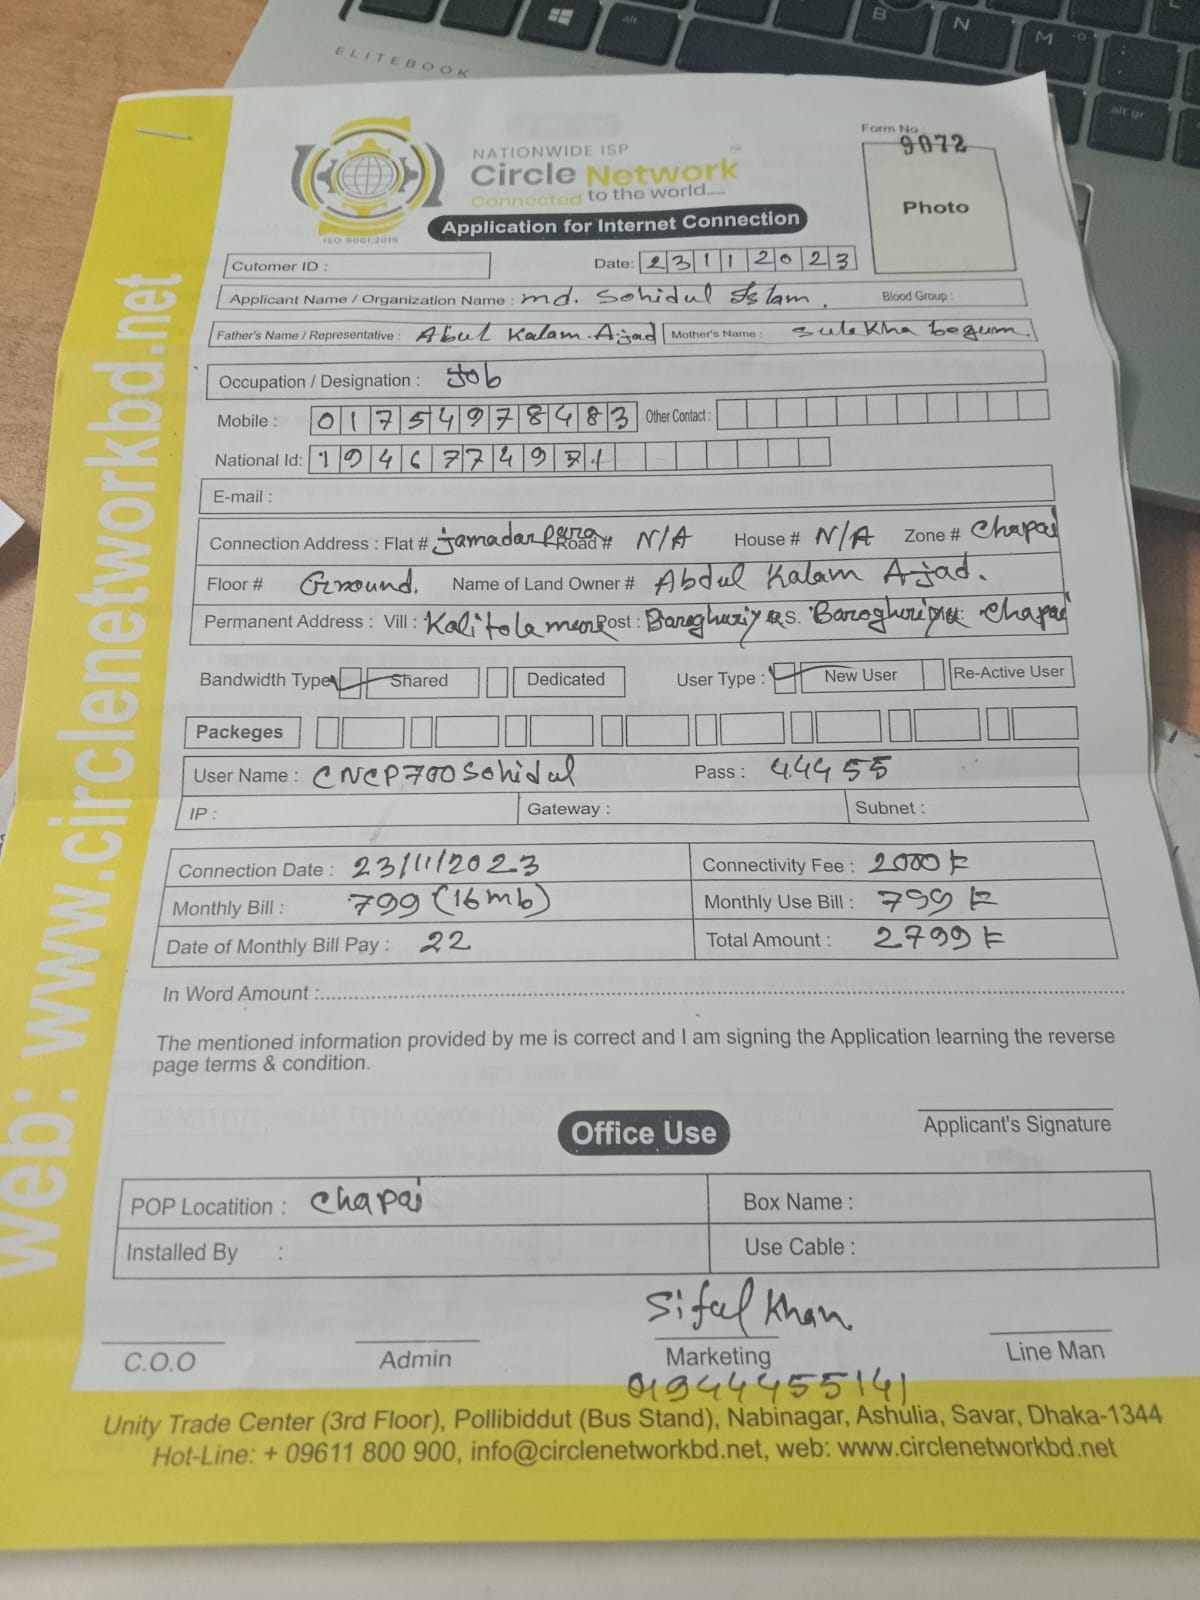 ELITEBOOK
Form No :
9072
NATIONWIDE ISP
Circle Network
Connected to the world.....
ISO 9001:2015
Application for Internet Connection
Photo
Cutomer ID :
Date: 23112023
Applicant Name / Organization Name : md. Sohidul Islam. Blood Group :
Father's Name / Representative : Abul Kalam Ajad Mother's Name : Sulekha begum.
Occupation / Designation : Job
Mobile : 01754978483 Other Contact :
National Id: 19467749
E-mail :
Connection Address : Flat # Jamadar Para Road # N/A House # N/A Zone # Chapai
Floor # Ground. Name of Land Owner # Abdul Kalam Ajad.
Permanent Address : Vill : Post : P.S. Chapai
Bandwidth Type Shared Dedicated User Type : New User Re-Active User
Packeges
User Name : CNCP700Sohidul Pass : 44455
IP : Gateway : Subnet :
Connection Date : 23/11/2023 Connectivity Fee : 2000 ৳
Monthly Bill : 799 (16mb) Monthly Use Bill : 799 ৳
Date of Monthly Bill Pay : 22 Total Amount : 2799 ৳
In Word Amount :
The mentioned information provided by me is correct and I am signing the Application learning the reverse
page terms & condition.
Applicant's Signature
Office Use
POP Locatition : Chapai Box Name :
Installed By : Use Cable :
Sifal Khan
C.O.O Admin Marketing Line Man
01944455141
Unity Trade Center (3rd Floor), Pollibiddut (Bus Stand), Nabinagar, Ashulia, Savar, Dhaka-1344
Hot-Line: + 09611 800 900, info@circlenetworkbd.net, web: www.circlenetworkbd.net
web: www.circlenetworkbd.net